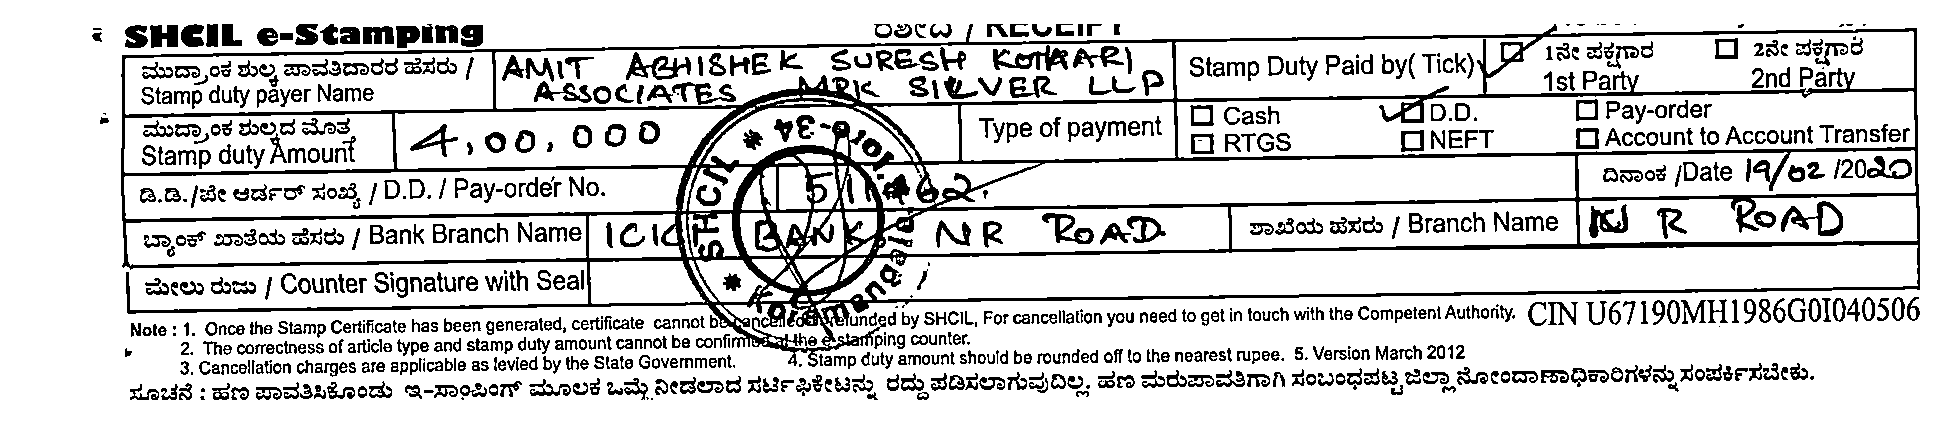 SHCIL e-Stamping ರಶೀದಿ / RECEIPT
ಮುದ್ರಾಂಕ ಶುಲ್ಕ ಪಾವತಿದಾರರ ಹೆಸರು / Stamp duty payer Name
AMIT ABHISHEK SURESH KOTHARI
ASSOCIATES MPK SILVER LLP
Stamp Duty Paid by( Tick)
1ನೇ ಪಕ್ಷಗಾರ 1st Party
2ನೇ ಪಕ್ಷಗಾರ 2nd Party
ಮುದ್ರಾಂಕ ಶುಲ್ಕದ ಮೊತ್ತ Stamp duty Amount
4,00,000
Type of payment
Cash D.D. Pay-order
RTGS NEFT Account to Account Transfer
ಡಿ.ಡಿ./ಪೇ ಆರ್ಡರ್ ಸಂಖ್ಯೆ / D.D. / Pay-order No.
ದಿನಾಂಕ /Date 19/02 /2020
ಬ್ಯಾಂಕ್ ಖಾತೆಯ ಹೆಸರು / Bank Branch Name ICICI BANK NR ROAD
ಶಾಖೆಯ ಹೆಸರು / Branch Name N R ROAD
ಮೇಲು ರುಜು / Counter Signature with Seal
* SHCIL * Koramangala B'lore-34
Note : 1. Once the Stamp Certificate has been generated, certificate cannot be cancelled / refunded by SHCIL, For cancellation you need to get in touch with the Competent Authority. CIN U67190MH1986G0I040506
2. The correctness of article type and stamp duty amount cannot be confirmed at the e-stamping counter.
3. Cancellation charges are applicable as levied by the State Government. 4. Stamp duty amount should be rounded off to the nearest rupee. 5. Version March 2012
ಸೂಚನೆ : ಹಣ ಪಾವತಿಸಿಕೊಂಡು ಇ-ಸ್ಟಾಂಪಿಂಗ್ ಮೂಲಕ ಒಮ್ಮೆ ನೀಡಲಾದ ಸರ್ಟಿಫಿಕೇಟನ್ನು ರದ್ದು ಪಡಿಸಲಾಗುವುದಿಲ್ಲ. ಹಣ ಮರುಪಾವತಿಗಾಗಿ ಸಂಬಂಧಪಟ್ಟ ಜಿಲ್ಲಾ ನೋಂದಾಣಾಧಿಕಾರಿಗಳನ್ನು ಸಂಪರ್ಕಿಸಬೇಕು.